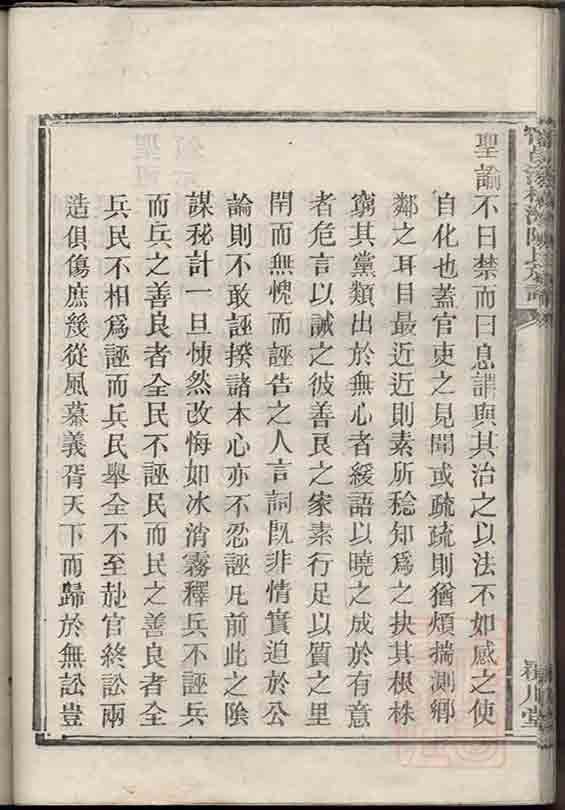 聖諭不曰禁而曰息謂與其治之以法不如感之使
自化也蓋官吏之見聞或疏疏則猶煩揣測鄉
鄰之耳目最近近則素所稔知爲之抉其根株
窮其黨類出於無心者緩語以曉之成於有意
者危言以誡之彼善良之家素行足以質之里
閈而無愧而誣告之人言詞既非情實迫於公
論則不敢誣揆諸本心亦不忍誣凡前此之陰
謀秘計一旦悚然改悔如冰消霧釋兵不誣兵
而兵之善良者全民不誣民而民之善良者全
兵民不相爲誣而兵民舉全不至赴官終訟兩
造俱傷庶幾從風慕義胥天下而歸於無訟豈
陳氏族譜
潁川堂